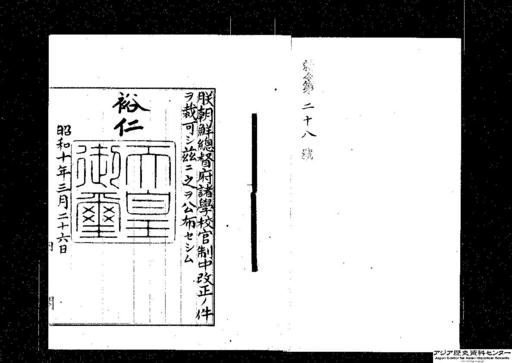 勅令第二十八號
朕朝鮮總督府諸學校官制中改正ノ件
ヲ裁可シ玆ニ之ヲ公布セシム
裕仁
天皇
御璽
昭和十年三月二十六日
アジア歴史資料センター
Japan Center for Asian Historical Records